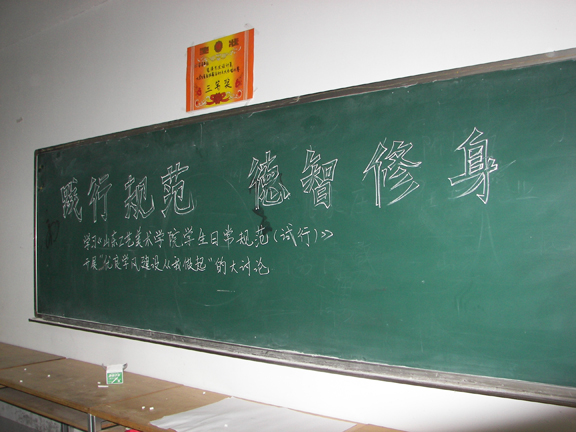 三等奖
践行规范 德智修身
学习《山东工艺美术学院学生日常规范(试行)》
开展"优良学风建设从我做起"的大讨论